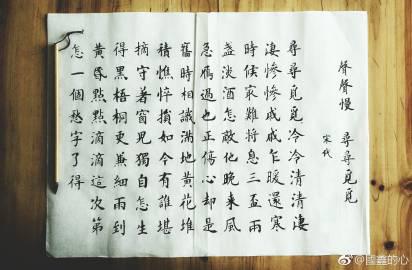 聲聲慢 尋尋覓覓
宋代
尋尋覓覓冷冷清清淒
淒慘慘戚戚乍暖還寒
時候最難將息三盃兩
盞淡酒怎敵他晚來風
急鴈過也正傷心却是
舊時相識滿地黃花堆
積憔悴損如今有誰堪
摘守著窗兒獨自怎生
得黑梧桐更兼細雨到
黃昏點點滴滴這次第
怎一個愁字了得
@國鑫的心